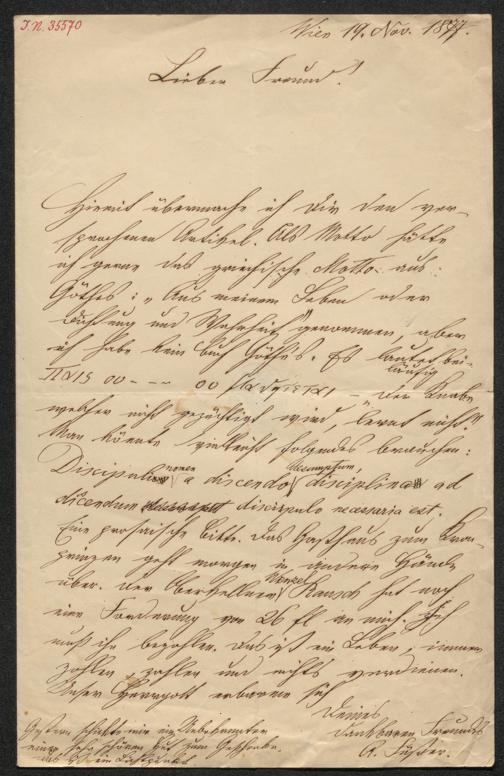 J.N. 35570
Wien 19. Nov. 1877.
Lieber Freund!
Hiemit übermache ich Dir den ver-
sprochenen Artikel. Als Motto hätte
ich gerne das griechische Motto aus:
Göthes: „Aus meinem Leben oder
Dichtung und Wahrheit" genommen, aber
ich habe kein Buch Göthe's. Es lautet bei-
läufig
παις ου - - - ου παιδευεται - „Der Knabe
welcher nicht gezüchtigt wird, lernt nicht."
Man könnte vielleicht folgendes brauchen:
Discipulus nomen a discendo assumpsum, disciplina ad
dicendum discipulo necessaria est.
Eine prosaische Bitte. Das Gasthaus zum Kron-
prinzen geht morgen in andere Hände
über. Der Oberkellner Wenzel hat noch
eine Forderung von 26 fl an mich. Ich
muß ihn bezahlen. Das ist ein Leben, immer
zahlen, zahlen und nichts verdienen.
Unser Herrgott erbarme sich
Deines
dankbaren Freundes
A. Füster.
Gestern schickte mir ein Unbekannter
einen sehr schönen Hut zum Geschenke.